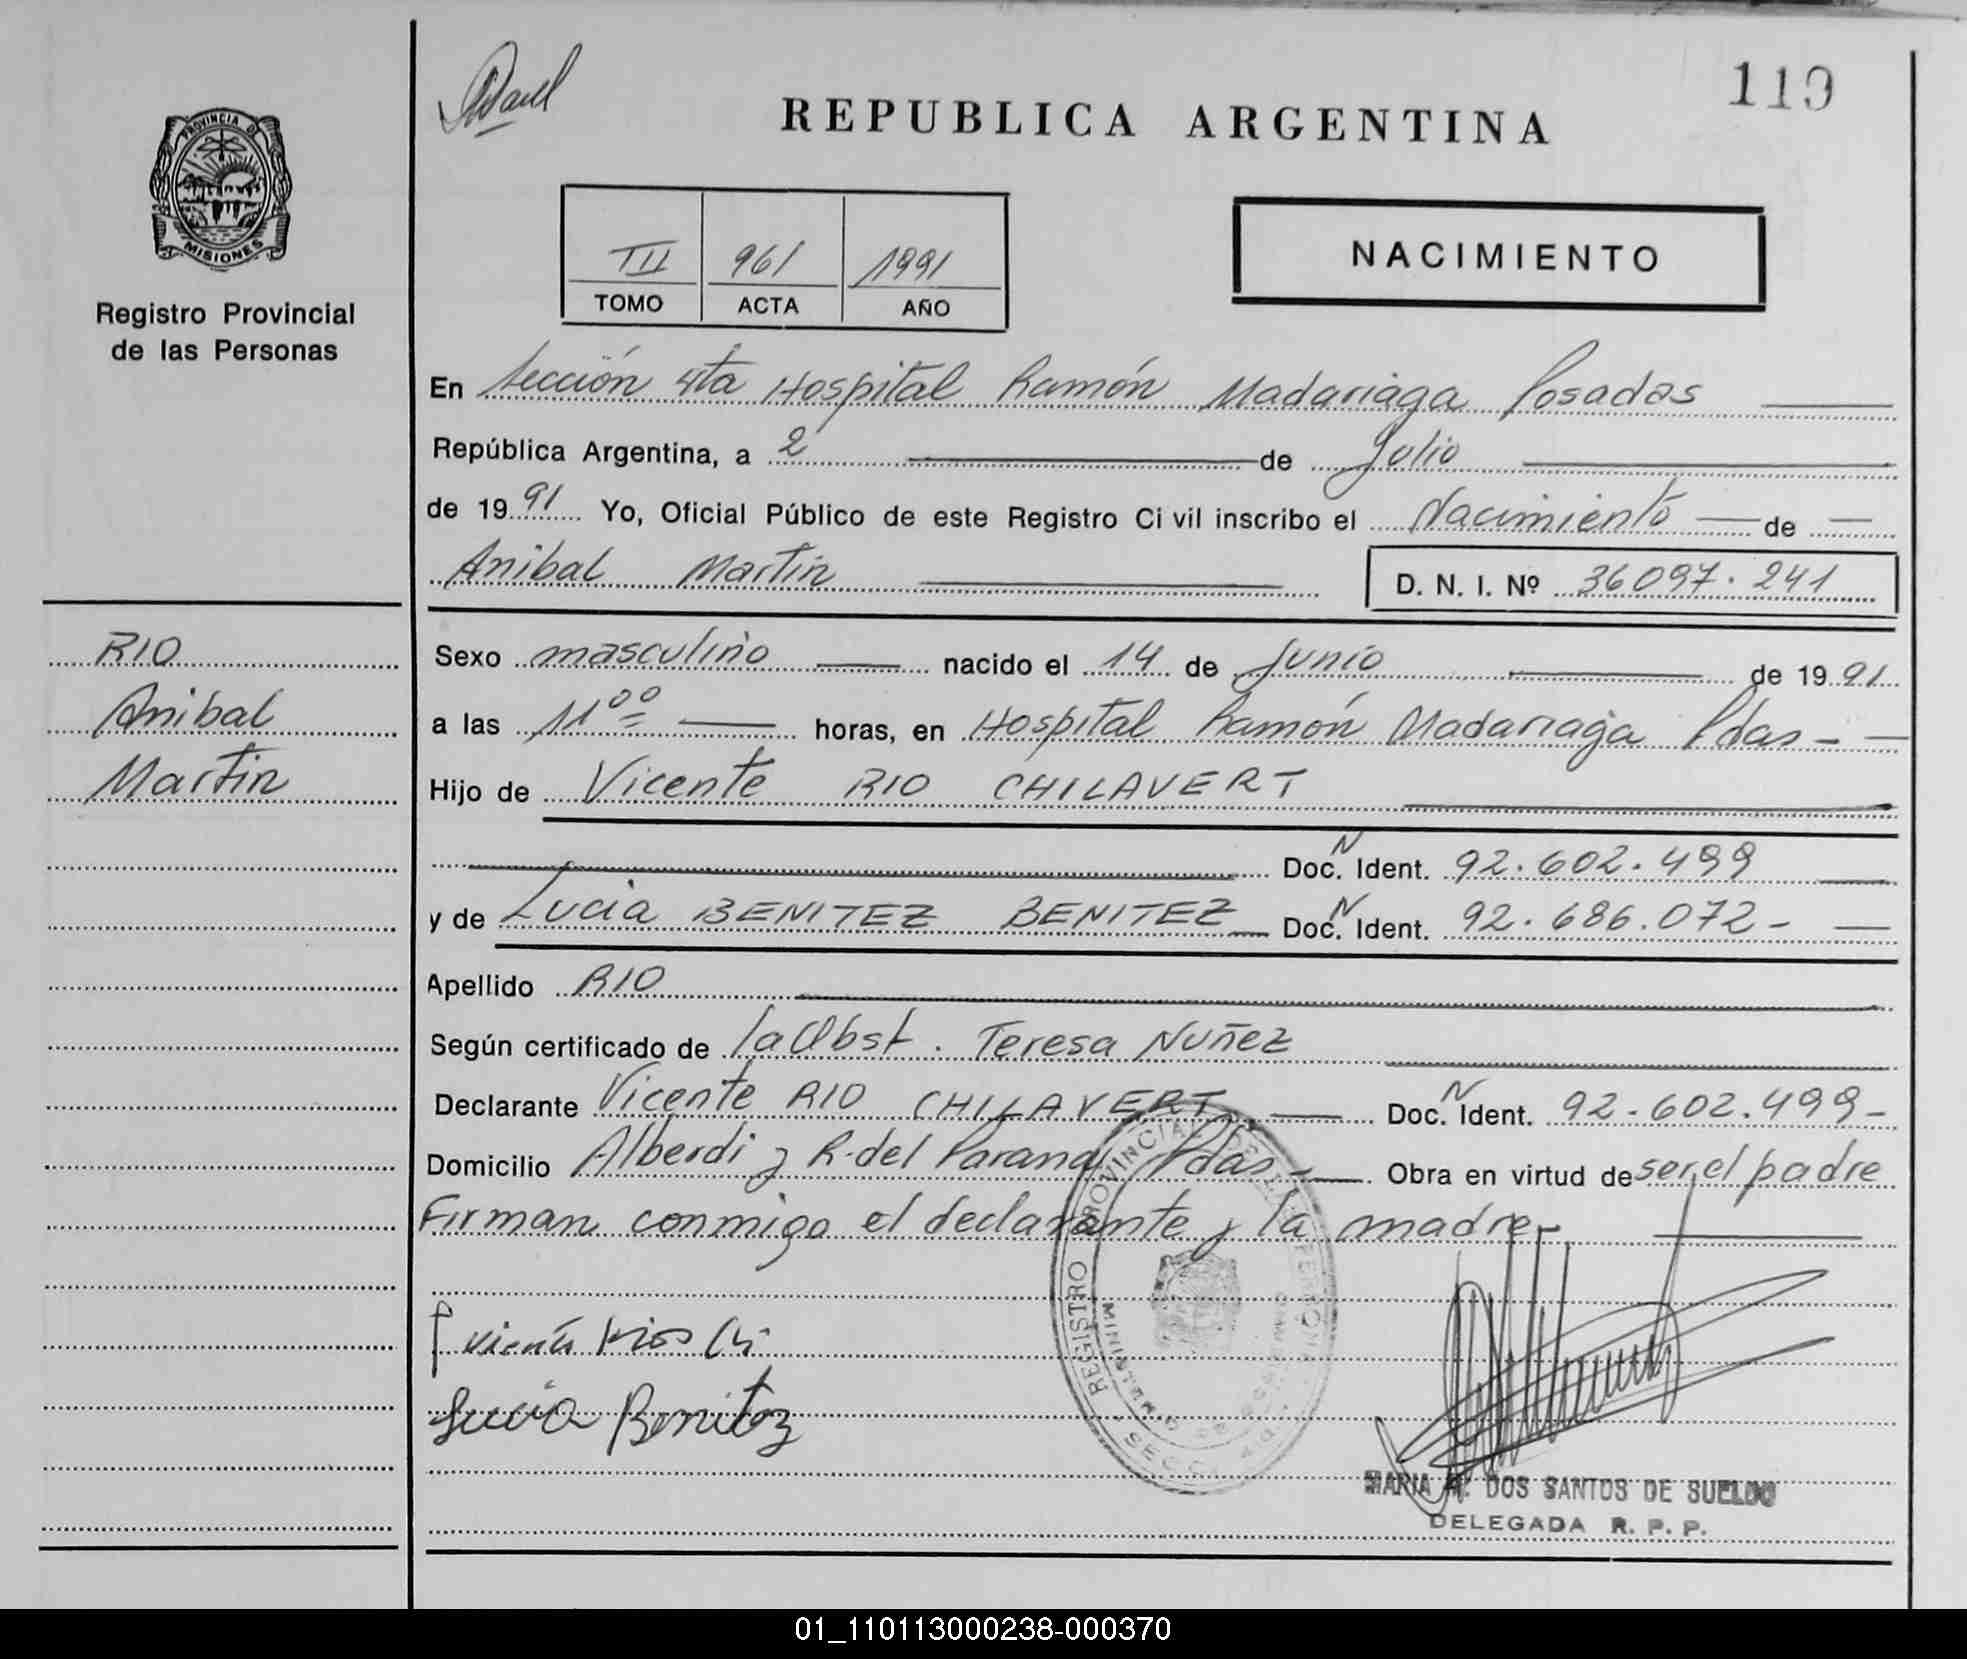 119
REPUBLICA ARGENTINA
PROVINCIA DE
MISIONES
Registro Provincial
de las Personas
TII 961 1991
TOMO ACTA AÑO
NACIMIENTO
En Sección 4ta Hospital Ramón Madariaga Posadas
República Argentina, a 2 de Julio
de 1991 Yo, Oficial Público de este Registro Civil inscribo el Nacimiento de
Anibal Martin D. N. I. Nº 36097.241
RIO
Anibal
Martin
Sexo masculino nacido el 14 de Junio de 1991
a las 11 00 horas, en Hospital Ramón Madariaga Pdas -
Hijo de Vicente RIO CHILAVERT
Doc. N Ident. 92.602.499
y de Lucia BENITEZ BENITEZ Doc. N Ident. 92.686.072 -
Apellido RIO
Según certificado de la Obst. Teresa Nuñez
Declarante Vicente RIO CHILAVERT Doc. N Ident. 92.602.499 -
Domicilio Alberdi y R. del Parana Pdas - Obra en virtud de ser el padre
Firman conmigo el declarante y la madre -
Lucia Benitez
REGISTRO PROVINCIAL DE LAS PERSONAS
MARIA DOS SANTOS DE SUELDO
DELEGADA R. P. P.
01_110113000238-000370